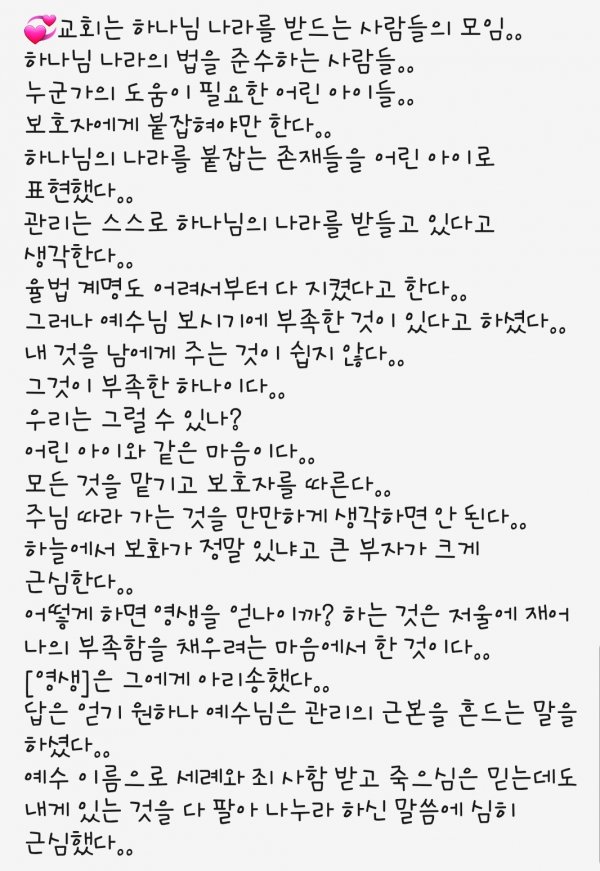 💞교회는 하나님 나라를 받드는 사람들의 모임。。
하나님 나라의 법을 준수하는 사람들。。
누군가의 도움이 필요한 어린 아이들。。
보호자에게 붙잡혀야만 한다。。
하나님의 나라를 붙잡는 존재들을 어린 아이로
표현했다。。
관리는 스스로 하나님의 나라를 받들고 있다고
생각한다。。
율법 계명도 어려서부터 다 지켰다고 한다。。
그러나 예수님 보시기에 부족한 것이 있다고 하셨다。。
내 것을 남에게 주는 것이 쉽지 않다。。
그것이 부족한 하나이다。。
우리는 그럴 수 있나?
어린 아이와 같은 마음이다。。
모든 것을 맡기고 보호자를 따른다。。
주님 따라 가는 것을 만만하게 생각하면 안 된다。。
하늘에서 보화가 정말 있냐고 큰 부자가 크게
근심한다。。
어떻게 하면 영생을 얻나이까? 하는 것은 저울에 재어
나의 부족함을 채우려는 마음에서 한 것이다。。
[영생]은 그에게 아리송했다。。
답은 얻기 원하나 예수님은 관리의 근본을 흔드는 말을
하셨다。。
예수 이름으로 세례와 죄 사함 받고 죽으심은 믿는데도
내게 있는 것을 다 팔아 나누라 하신 말씀에 심히
근심했다。。